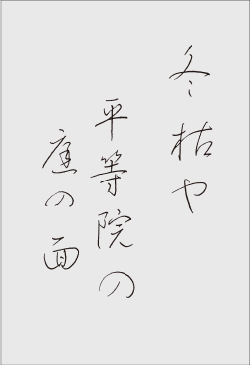 冬枯や
平等院の
庭の面